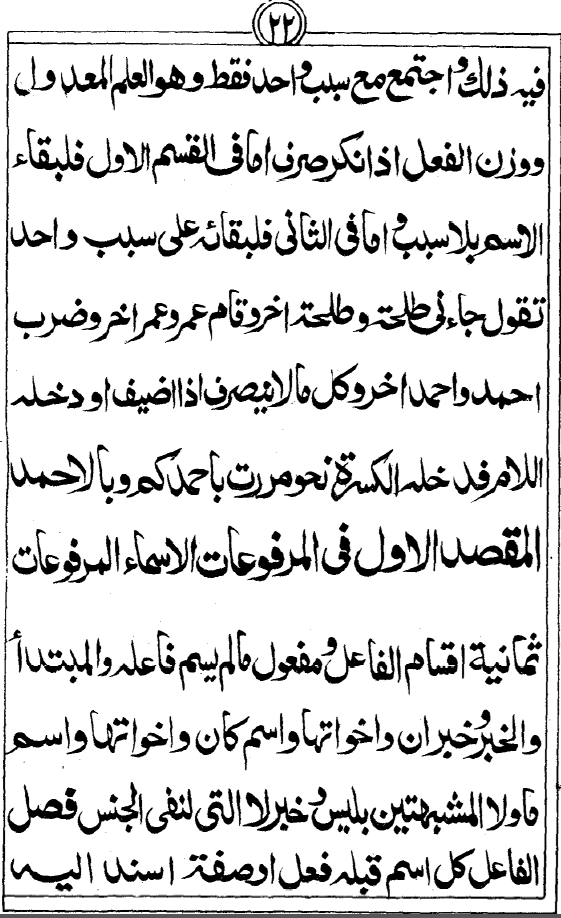 ٢٢
فيه ذلك واجتمع مع سبب واحد فقط وهو العلم المعدول
ووزن الفعل اذا نكر صرف اما فى القسم الاول فلبقاء
الاسم بلا سبب واما فى الثانى فلبقائه على سبب واحد
تقول جاءنى طلحة وطلحة اخر وقام عمر وعمر اخر وضرب
احمد واحمد اخر وكل مالا ينصرف اذا اضيف او دخله
اللام فدخله الكسرة نحو مررت باحمدكم وبالاحمد
المقصد الاول فى المرفوعات الاسماء المرفوعات
ثمانية اقسام الفاعل ومفعول مالم يسم فاعله والمبتدأ
والخبر وخبر ان واخواتها واسم كان واخواتها واسم
ماولا المشبهتين بليس وخبر لا التى لنفى الجنس فصل
الفاعل كل اسم قبله فعل اوصفة اسند اليه